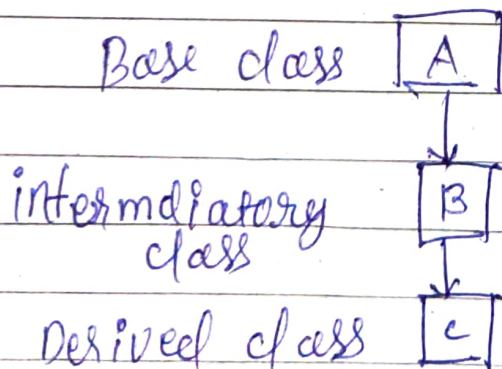 Base class A
intermdiatory B
class
Derived class C